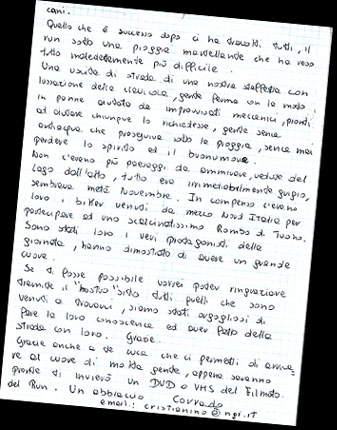 cani.
Quello che è successo dopo ci ha travolti tutti, il
run sotto una pioggia martellante che ha reso
tutto maledettamente più difficile.
Una uscita di strada di una nostra staffetta con
lussazione della clavicola, gente ferma con le moto
in panne aiutata da improvvisati meccanici, pronti
ad aiutare chiunque lo richiedesse, gente senza
antiacqua che proseguiva sotto la pioggia, senza mai
perdere lo spirito ed il buonumore.
Non c'erano più paesaggi da ammirare, vedute del
lago dall'alto, tutto era irrimediabilmente grigio,
sembrava metà Novembre. In compenso c'erano
loro, i biker venuti da mezzo Nord Italia per
partecipare ad uno scalcinatissimo Rombo di Tuono.
Sono stati loro i veri protagonisti della
giornata, hanno dimostrato di avere un grande
cuore.
Se ti fosse possibile vorrei poter ringraziare
tramite il "nostro" sito tutti quelli che sono
venuti a trovarci, siamo stati orgogliosi di
fare la loro conoscenza ed aver fatto della
strada con loro. Grazie.
Grazie anche a te Luca che ci permetti di arriva-
re al cuore di molta gente, appena saranno
pronte ti invierò un DVD o VHS del filmato
del Run. Un abbraccio Corrado
email: cristianino@ngi.it